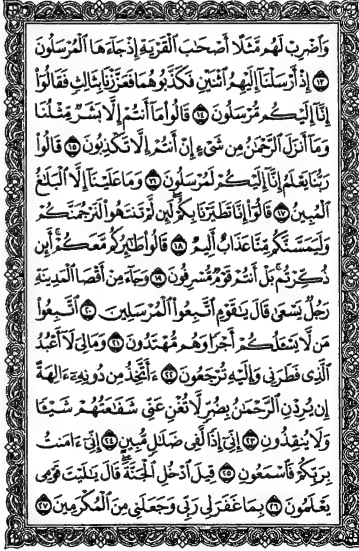 وَاضْرِبْ لَهُم مَّثَلًا أَصْحَابَ الْقَرْيَةِ إِذْ جَاءَهَا الْمُرْسَلُونَ
﴿١٣﴾ إِذْ أَرْسَلْنَا إِلَيْهِمُ اثْنَيْنِ فَكَذَّبُوهُمَا فَعَزَّزْنَا بِثَالِثٍ فَقَالُوا
إِنَّا إِلَيْكُم مُّرْسَلُونَ ﴿١٤﴾ قَالُوا مَا أَنتُمْ إِلَّا بَشَرٌ مِّثْلُنَا
وَمَا أَنزَلَ الرَّحْمَٰنُ مِن شَيْءٍ إِنْ أَنتُمْ إِلَّا تَكْذِبُونَ ﴿١٥﴾ قَالُوا
رَبُّنَا يَعْلَمُ إِنَّا إِلَيْكُمْ لَمُرْسَلُونَ ﴿١٦﴾ وَمَا عَلَيْنَا إِلَّا الْبَلَاغُ
الْمُبِينُ ﴿١٧﴾ قَالُوا إِنَّا تَطَيَّرْنَا بِكُمْ لَئِن لَّمْ تَنتَهُوا لَنَرْجُمَنَّكُمْ
وَلَيَمَسَّنَّكُم مِّنَّا عَذَابٌ أَلِيمٌ ﴿١٨﴾ قَالُوا طَائِرُكُم مَّعَكُمْ أَئِن
ذُكِّرْتُم بَلْ أَنتُمْ قَوْمٌ مُّسْرِفُونَ ﴿١٩﴾ وَجَاءَ مِنْ أَقْصَا الْمَدِينَةِ
رَجُلٌ يَسْعَىٰ قَالَ يَا قَوْمِ اتَّبِعُوا الْمُرْسَلِينَ ﴿٢٠﴾ اتَّبِعُوا
مَن لَّا يَسْأَلُكُمْ أَجْرًا وَهُم مُّهْتَدُونَ ﴿٢١﴾ وَمَا لِيَ لَا أَعْبُدُ
الَّذِي فَطَرَنِي وَإِلَيْهِ تُرْجَعُونَ ﴿٢٢﴾ أَأَتَّخِذُ مِن دُونِهِ آلِهَةً
إِن يُرِدْنِ الرَّحْمَٰنُ بِضُرٍّ لَّا تُغْنِ عَنِّي شَفَاعَتُهُمْ شَيْئًا
وَلَا يُنقِذُونِ ﴿٢٣﴾ إِنِّي إِذًا لَّفِي ضَلَالٍ مُّبِينٍ ﴿٢٤﴾ إِنِّي آمَنتُ
بِرَبِّكُمْ فَاسْمَعُونِ ﴿٢٥﴾ قِيلَ ادْخُلِ الْجَنَّةَ قَالَ يَا لَيْتَ قَوْمِي
يَعْلَمُونَ ﴿٢٦﴾ بِمَا غَفَرَ لِي رَبِّي وَجَعَلَنِي مِنَ الْمُكْرَمِينَ ﴿٢٧﴾